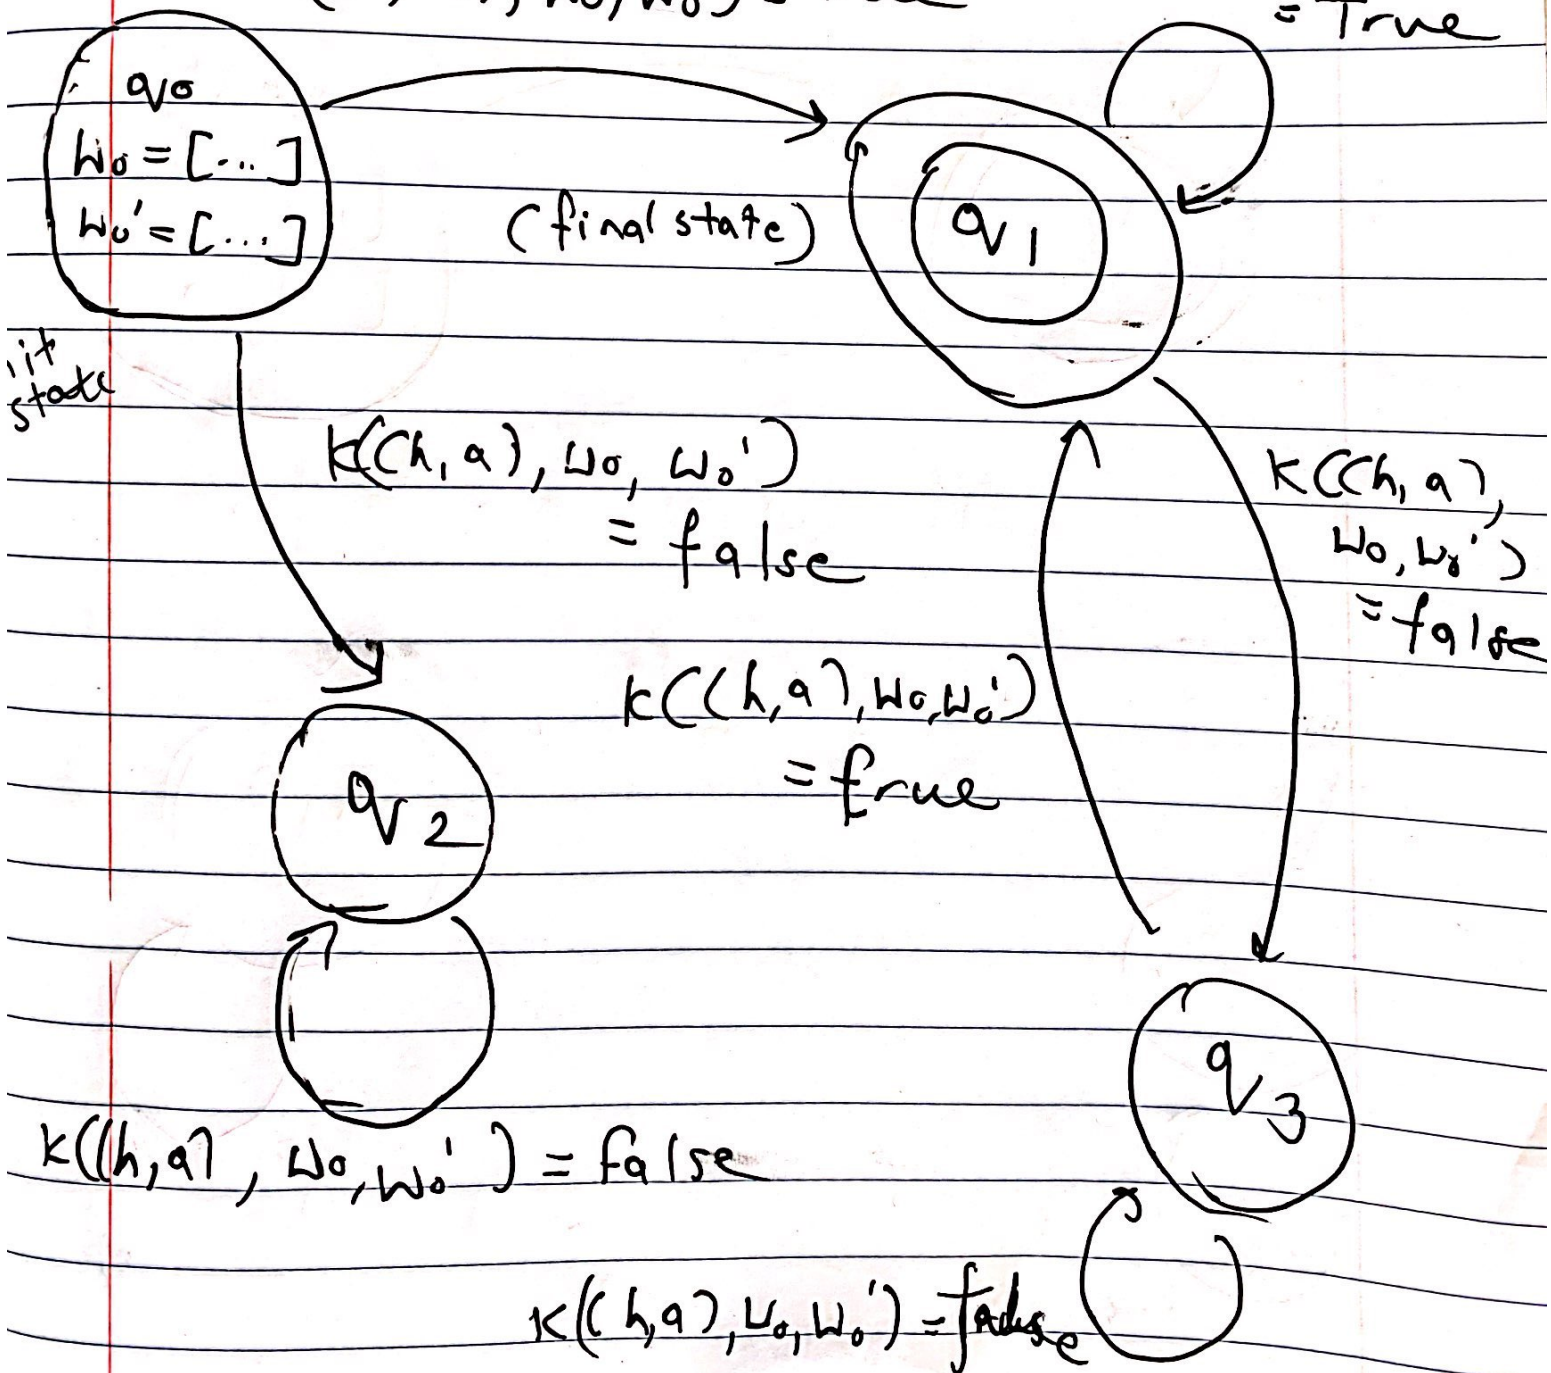 = True
q0
w0 = [...]
w0' = [...]
(final state)
q1
state
K((h, a), w0, w0')
= false
K((h, a),
w0, w0')
= false
K((h, a), w0, w0')
= true
q2
q3
K((h, a), w0, w0') = false
K((h, a), w0, w0') = false